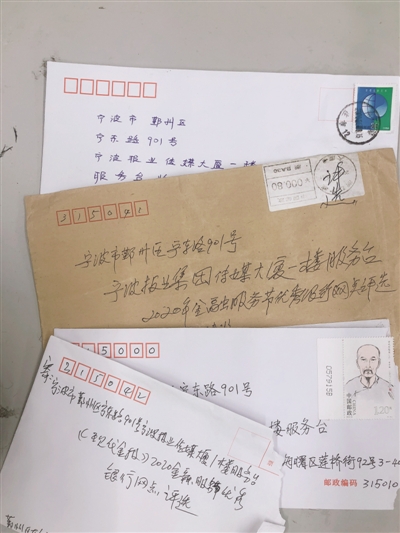 宁波市 鄞州区
宁东路901号
宁波报业传媒大厦一楼
服务台
315041
宁波市鄞州区宁东路901号
宁波报业集团传媒大厦一楼服务台
2020年金融服务节优秀银行网点评选
5000
宁东路901号
楼服务台
中国邮政
海曙区莲桥街92号3-4
邮政编码 315010
315042
宁波市鄞州区宁东路901号宁波报业传媒大厦1楼服务台
《现代金报》2020金融服务优秀
银行网点评选